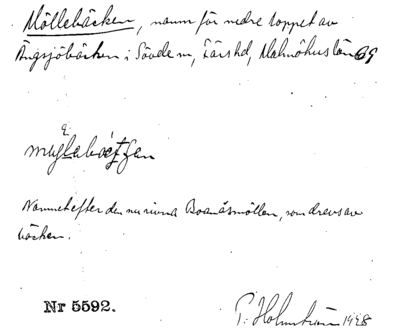 Möllebäcken, namn för nedre loppet av
Ängsjöbäcken i Sövde sn, Färs hd, Malmöhus län
Namnet efter den nu rivna, som drevs av
bäcken.
Nr 5592.
P. Holmström 1928